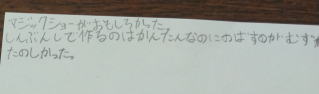 マジックショーがおもしろかった。
しんぶんしで作るのはかんたんなのにのばすのがむず
たのしかった。